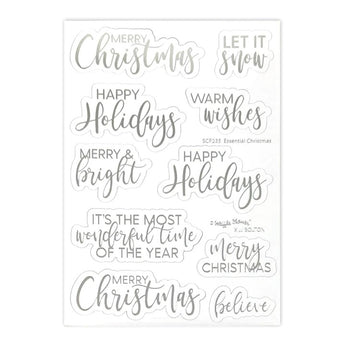 MERRY
Christmas
LET IT
snow
HAPPY
Holidays
WARM
wishes
SCF233 Essential Christmas
MERRY &
bright
HAPPY
Holidays
IT'S THE MOST
wonderful time
OF THE YEAR
merry
CHRISTMAS
MERRY
Christmas
believe